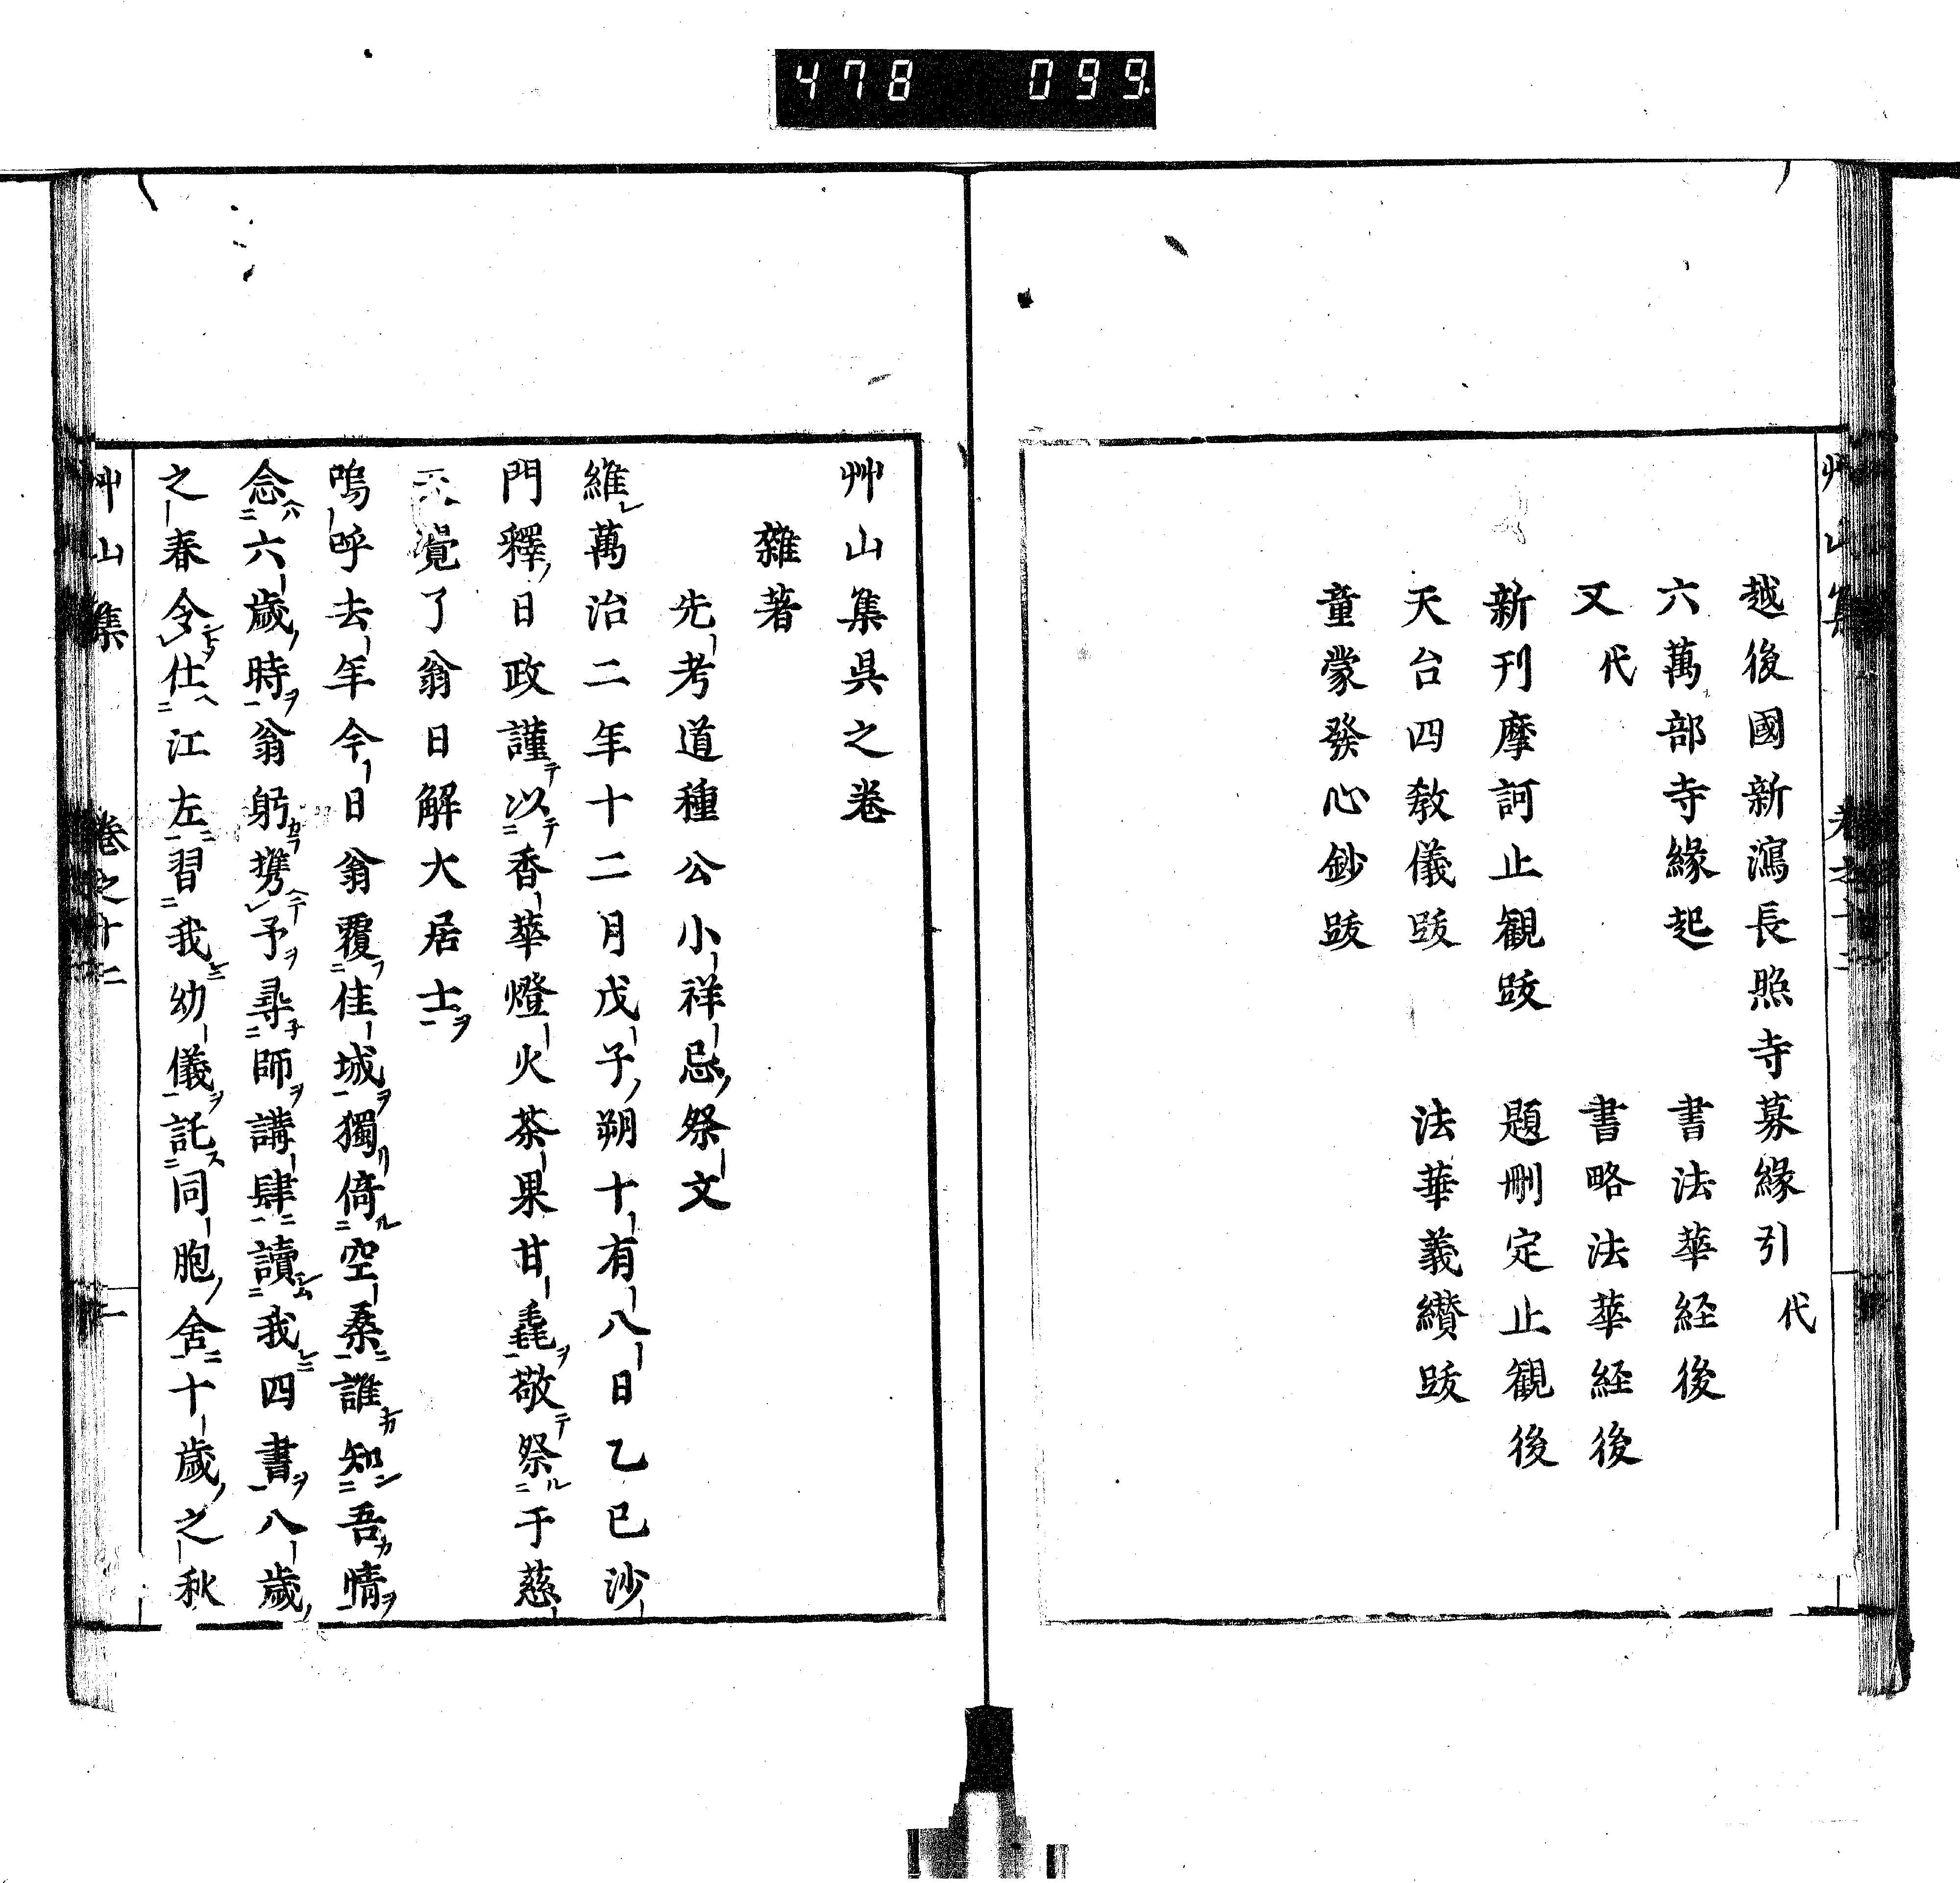 478 099
艸山集 卷之十二
越後國新瀉長照寺募緣引 代
六萬部寺緣起 書法華経後
又 代 書略法華経後
新刊摩訶止観跋 題刪定止観後
天台四教儀跋 法華義纉跋
童蒙發心鈔跋
艸山集具之卷
雜著
先考道種公小祥忌祭文
維萬治二年十二月戊子朔十有八日乙巳沙
門釋日政謹以香華燈火茶果甘毳敬祭于慈
覚了翁日解大居士
嗚呼去年今日翁覆佳城獨倚空桑誰知吾情
念六歲時翁躬攜予尋師講肆讀我四書八歲
之春令仕江左習我幼儀託同胞舍十歲之秋
艸山集 卷之十二